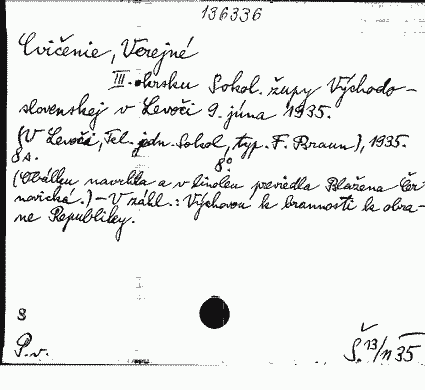 136336
Cvičenie, Verejné
III. okrsku Sokol. župy Východo-
slovenskej v Levoči 9. júna 1935.
(V Levoči, Tel. jedn. Sokol, typ. F. Braun), 1935.
8 s. 8°
(Obálku navrhla a v linoleu previedla Blažena Čer-
novická.) – V záhl.: Výchovou k brannosti k obra-
ne Republiky.
8
P.v. Š. 13/II 35